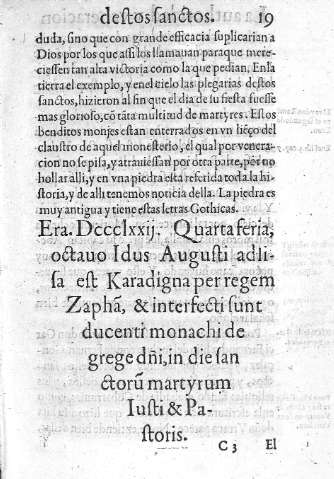 destos sanctos. 19
duda, sino que con grande efficacia suplicarian a
Dios por los que assi los llamauan paraque mere-
ciessen tan alta victoria como la que pedian. En la
tierra el exemplo, y en el cielo las plegarias destos
sanctos, hizieron al fin que el dia de su fiesta fuesse
mas glorioso, cō tāta multiud de martyres. Estos
benditos monjes estan enterrados en vn liēço del
claustro de aquel monesterio, el qual por venera-
cion no se pisa, y atrauiessan por otra parte, por no
hollar alli, y en vna piedra esta referida toda la hi-
storia, y de alli tenemos noticia della. La piedra es
muy antigua y tiene estas letras Gothicas.
Era. Dccclxxij. Quarta feria,
octauo Idus Augusti adli-
sa est Karadigna per regem
Zaphā, & interfecti sunt
ducenti monachi de
grege dñi, in die san
ctorū martyrum
Iusti & Pa-
storis.
C 3 El